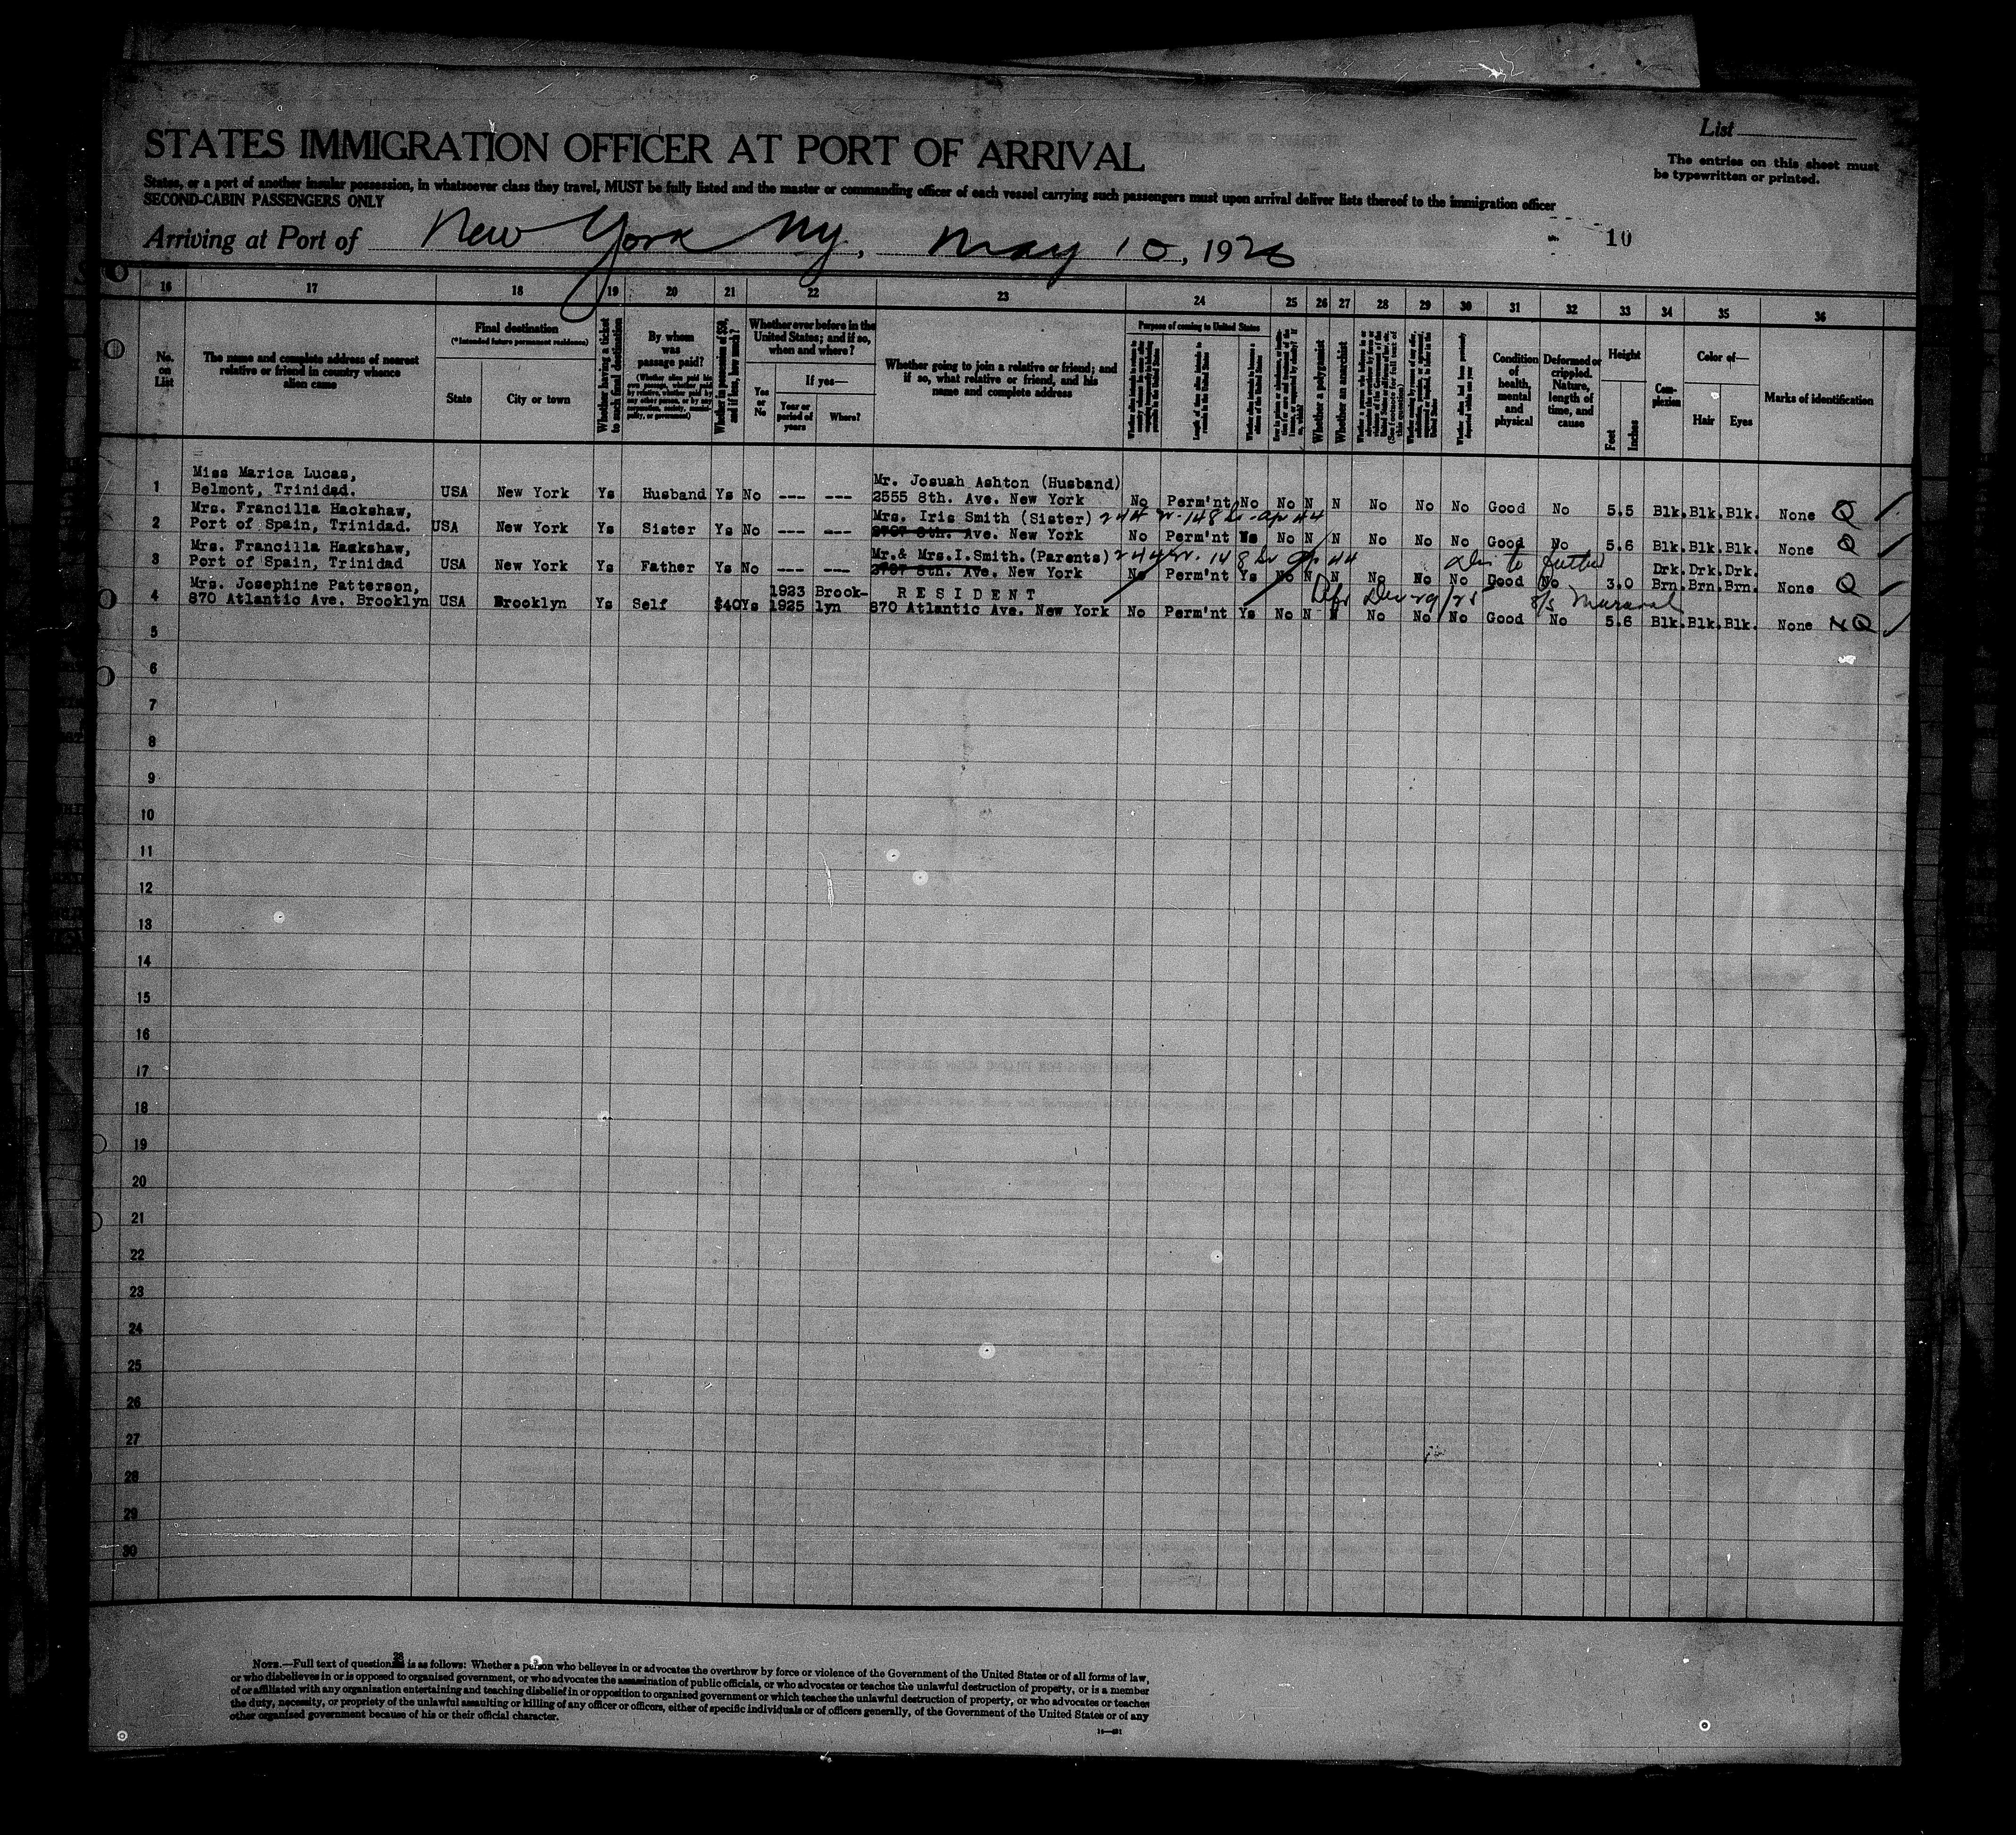 STATES IMMIGRATION OFFICER AT PORT OF ARRIVAL
List
The entries on this sheet must
be typewritten or printed.
States, or a port of another insular possession, in whatsoever class they travel, MUST be fully listed and the master or commanding officer of each vessel carrying such passengers must upon arrival deliver lists thereof to the immigration officer
SECOND-CABIN PASSENGERS ONLY
Arriving at Port of New York Ny, May 10, 1926
10
16 17 18 19 20 21 22 23 24 25 26 27 28 29 30 31 32 33 34 35 36
No. on List
The name and complete address of nearest
relative or friend in country whence
alien came
Final destination
(*Intended future permanent residence)
State
City or town
Whether having a ticket
to such final destination
By whom
was
passage paid?
Whether in possession of $50,
and if less, how much?
Whether ever before in the
United States; and if so,
when and where?
Yes
or
No
If yes—
Year or
period of
years
Where?
Whether going to join a relative or friend; and
if so, what relative or friend, and his
name and complete address
Purpose of coming to United States
Whether a polygamist
Whether an anarchist
Condition
of
health,
mental
and
physical
Deformed or
crippled.
Nature,
length of
time, and
cause
Height
Feet
Inches
Com-
plexion
Color of—
Hair
Eyes
Marks of identification
Miss Marica Lucas, Mr. Josuah Ashton (Husband)
1 Belmont, Trinidad. USA New York Ys Husband Ys No --- --- 2555 8th. Ave. New York No Perm'nt No No N N No No No Good No 5.5 Blk. Blk. Blk. None Q
Mrs. Francilla Hackshaw, Mrs. Iris Smith (Sister) 244 W. 148
2 Port of Spain, Trinidad. USA New York Ys Sister Ys No --- --- 2787 8th. Ave. New York No Perm'nt Ys No N N No No No Good No 5.6 Blk. Blk. Blk. None Q
Mrs. Francilla Hackshaw, Mr.& Mrs.I.Smith.(Parents) 244 W. 148 to father Drk. Drk. Drk.
3 Port of Spain, Trinidad USA New York Ys Father Ys No --- --- 2787 8th. Ave. New York No Perm'nt Ys No N N No No No Good No 3.0 Brn. Brn. Brn. None Q
Mrs. Josephine Patterson, 1923 Brook- RESIDENT 29/25 S/S Maraval
4 870 Atlantic Ave. Brooklyn USA Brooklyn Ys Self $40 Ys 1925 lyn 870 Atlantic Ave. New York No Perm'nt Ys No N N No No No Good No 5.6 Blk. Blk. Blk. None NQ
5
6
7
8
9
10
11
12
13
14
15
16
17
18
19
20
21
22
23
24
25
26
27
28
29
30
NOTE.—Full text of question 28 is as follows: Whether a person who believes in or advocates the overthrow by force or violence of the Government of the United States or of all forms of law,
or who disbelieves in or is opposed to organized government, or who advocates the assassination of public officials, or who advocates or teaches the unlawful destruction of property, or is a member
of or affiliated with any organization entertaining and teaching disbelief in or opposition to organized government or which teaches the unlawful destruction of property, or who advocates or teaches
the duty, necessity, or propriety of the unlawful assaulting or killing of any officer or officers, either of specific individuals or of officers generally, of the Government of the United States or of any
other organized government because of his or their official character.